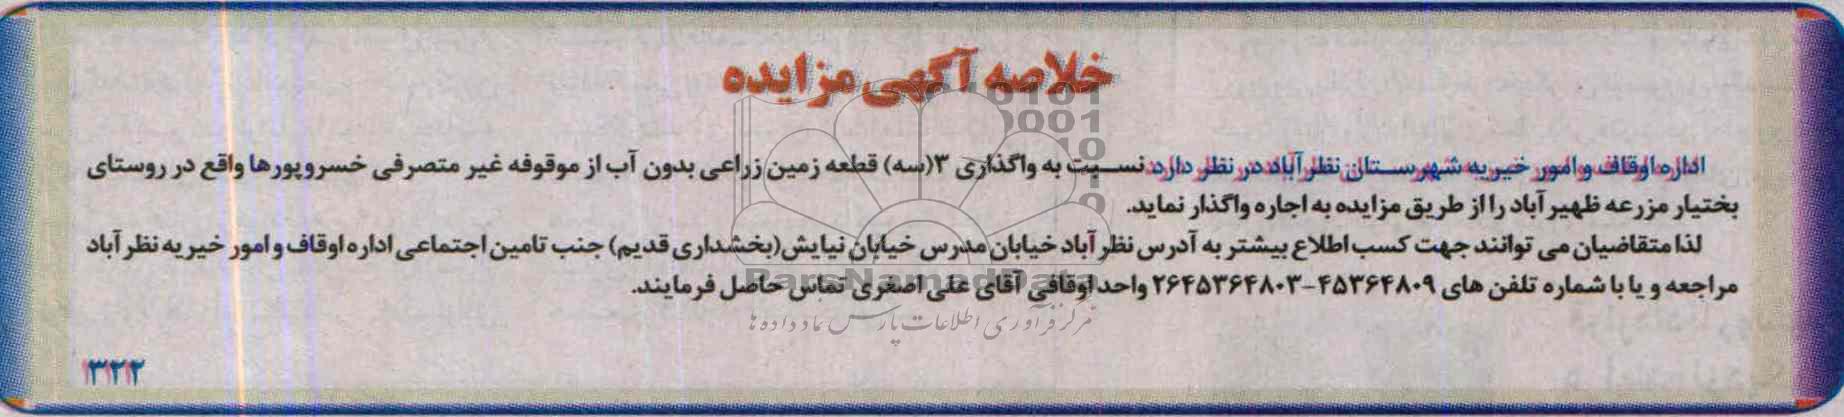 خلاصه آگهی مزایده
اداره اوقاف و امور خیریه شهرستان نظرآباد در نظر دارد نسبت به واگذاری ۳(سه) قطعه زمین زراعی بدون آب از موقوفه غیر متصرفی خسروپورها واقع در روستای
بختیار مزرعه ظهیر آباد را از طریق مزایده به اجاره واگذار نماید.
لذا متقاضیان می توانند جهت کسب اطلاع بیشتر به آدرس نظر آباد خیابان مدرس خیابان نیایش(بخشداری قدیم) جنب تامین اجتماعی اداره اوقاف و امور خیریه نظر آباد
مراجعه و یا با شماره تلفن های ۴۵۳۶۴۸۰۹-۲۶۴۵۳۶۴۸۰۳ واحد اوقافی آقای علی اصغری تماس حاصل فرمایند.
ParsNamadData
مرکز فرآوری اطلاعات پارس نماد داده ها